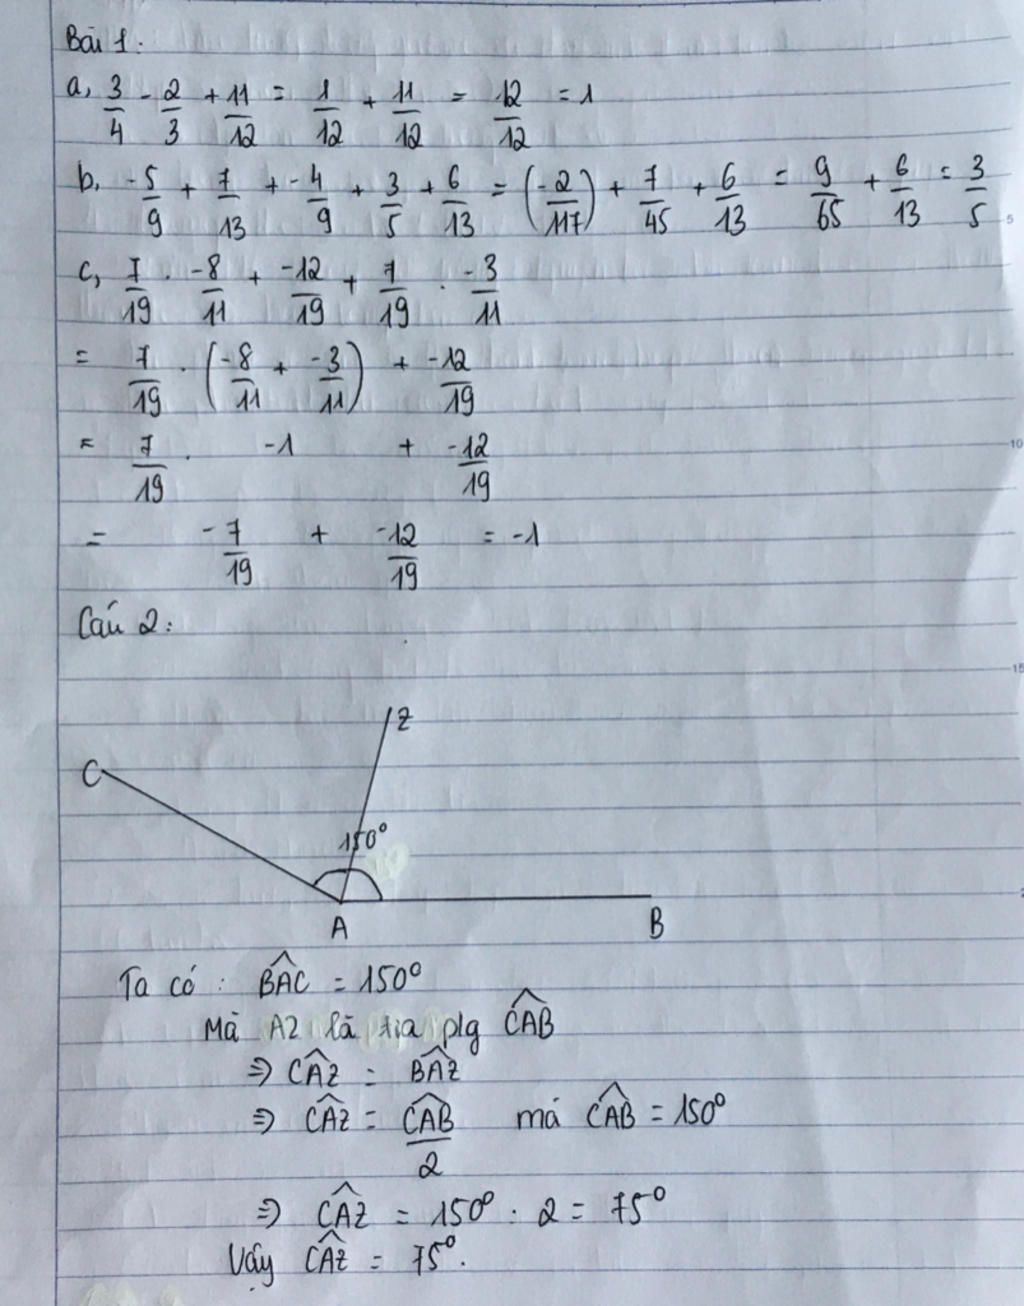 Bài 1:
a, 3/4 - 2/3 + 11/12 = 1/12 + 11/12 = 12/12 = 1
b, -5/9 + 7/13 + -4/9 + 3/5 + 6/13 = (-2/117) + 7/45 + 6/13 = 9/65 + 6/13 = 3/5
c, 7/19 . -8/11 + -12/19 + 7/19 . -3/11
= 7/19 . (-8/11 + -3/11) + -12/19
= 7/19 . -1 + -12/19
= -7/19 + -12/19 = -1
Câu 2:
z
C
150°
A B
Ta có : BAC = 150°
Mà AZ là tia plg CAB
=> CAz = BAz
=> CAz = CAB/2 mà CAB = 150°
=> CAz = 150° : 2 = 75°
Vậy CAz = 75°.
5
10
15
2